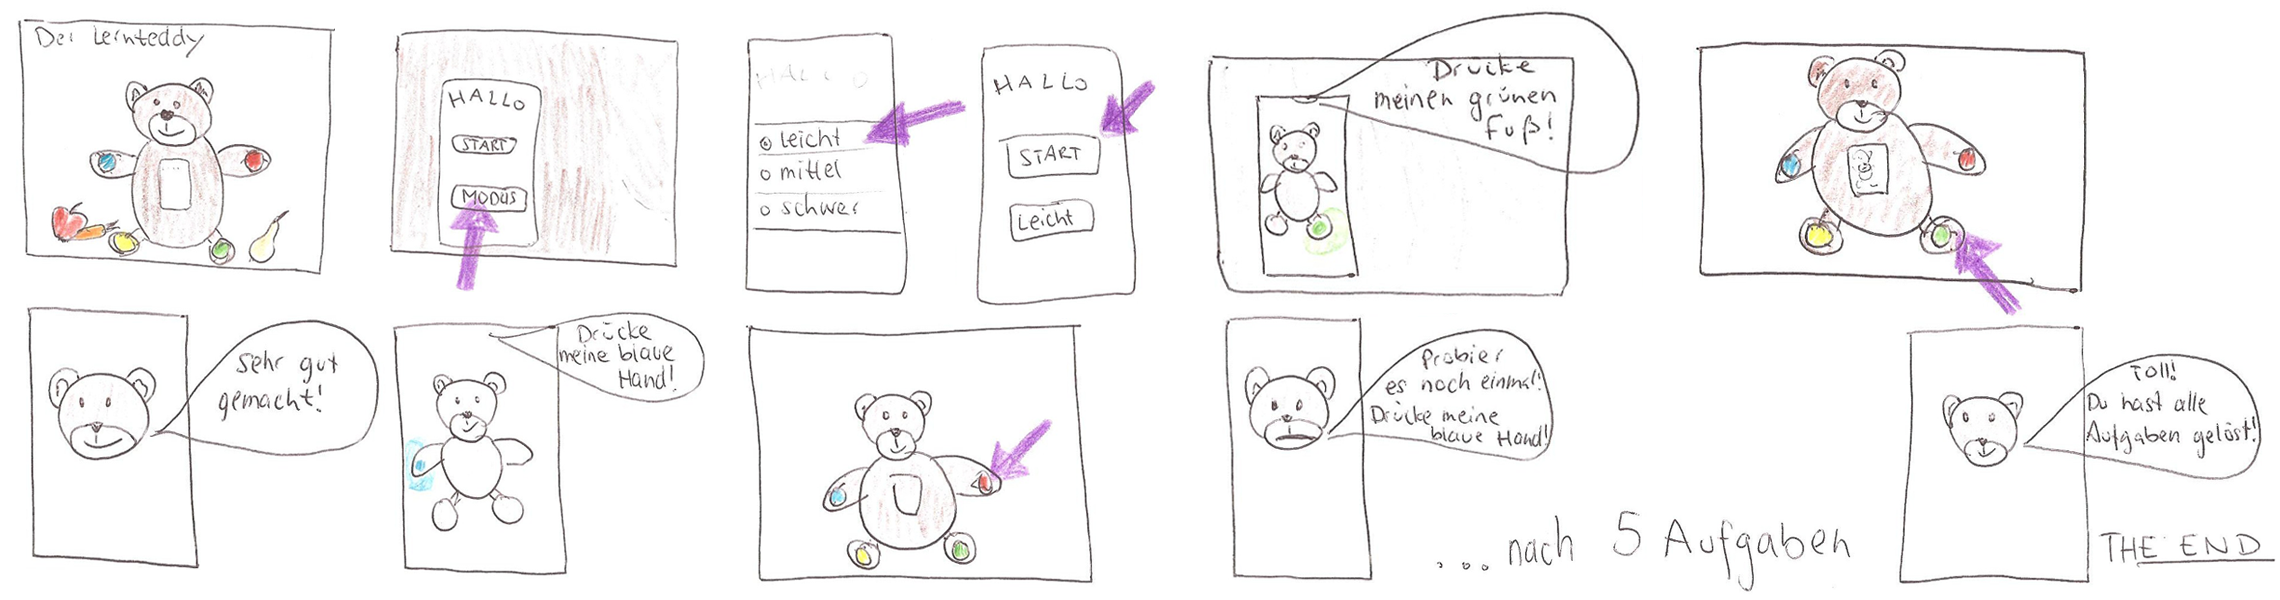 Der Lernteddy
HALLO
START
MODUS
HALLO
leicht
mittel
schwer
HALLO
START
Leicht
Drücke
meinen grünen
Fuß!
Sehr gut
gemacht!
Drücke
meine blaue
Hand!
Probier
es noch einmal!
Drücke meine
blaue Hand!
...nach 5 Aufgaben
Toll!
Du hast alle
Aufgaben gelöst!
THE END